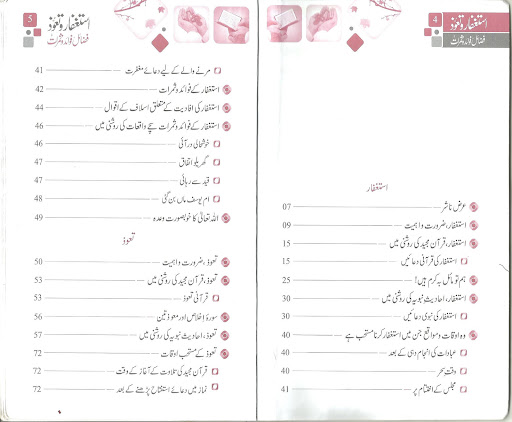 4
استغفار و تعوذ
فضائل فوائد و ثمرات
استغفار
عرض ناشر 07
استغفار، ضرورت و اہمیت 09
استغفار، قرآن مجید کی روشنی میں 15
استغفار کی قرآنی دعائیں 15
ہم تو مائل بہ کرم ہیں! 25
استغفار، احادیث نبویہ کی روشنی میں 30
استغفار کی نبوی دعائیں 30
وہ اوقات و مواقع جن میں استغفار کرنا مستحب ہے 40
عبادات کی انجام دہی کے بعد 40
وقت سحر 40
مجلس کے اختتام پر 41
5
استغفار و تعوذ
فضائل فوائد و ثمرات
مرنے والے کے لیے دعائے مغفرت 41
استغفار کے فوائد و ثمرات 42
استغفار کی افادیت کے متعلق اسلاف کے اقوال 44
استغفار کے فوائد و ثمرات سچے واقعات کی روشنی میں 46
خوشحالی در آئی 46
گھریلو اتفاق 47
قید سے رہائی 47
ام یوسف ماں بن گئی 48
اللہ تعالیٰ کا خوبصورت وعدہ 49
تعوذ
تعوذ، ضرورت و اہمیت 50
تعوذ، قرآن مجید کی روشنی میں 53
قرآنی تعوذ 53
سورۂ اخلاص اور معوذتین 56
تعوذ، احادیث نبویہ کی روشنی میں 57
تعوذ کے مستحب اوقات 72
قرآن مجید کی تلاوت کے آغاز کے وقت 72
نماز میں دعائے استفتاح پڑھنے کے بعد 72